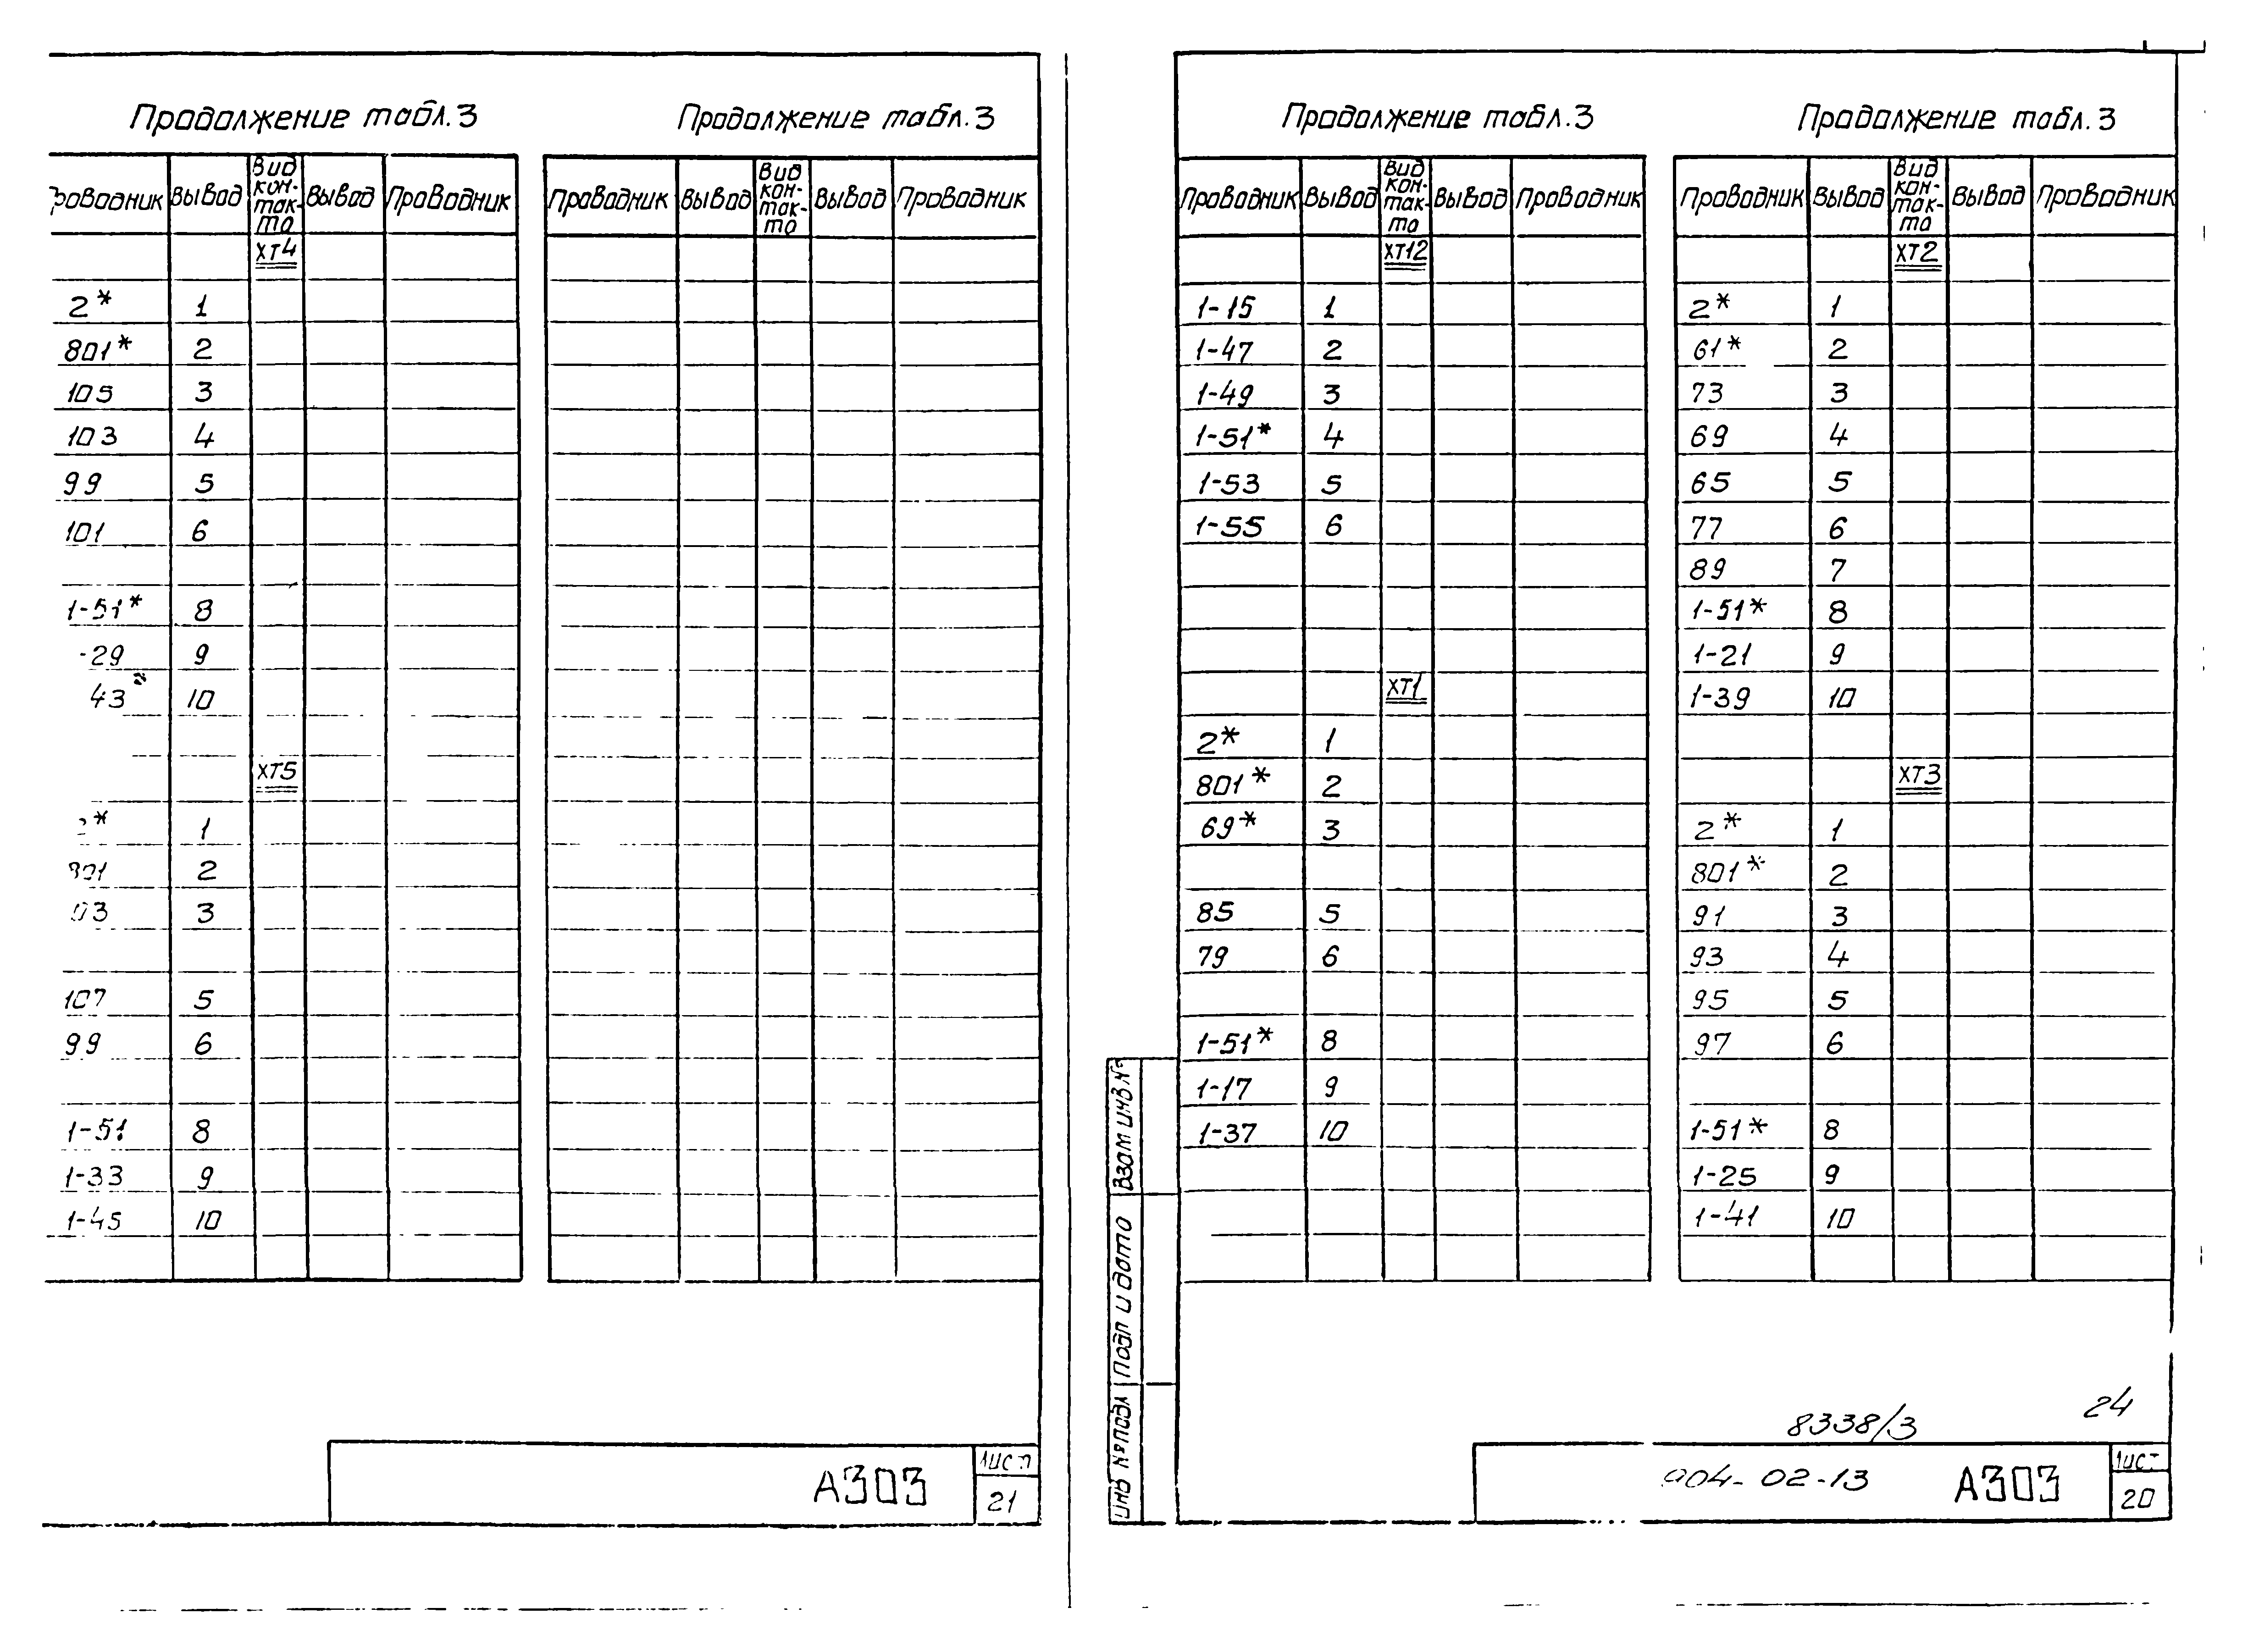 Продолжение табл.3
Вывод Вид кон-так-та Вывод Проводник
ХТ4
2* 1
801* 2
105 3
103 4
99 5
101 6
1-51* 8
-29 9
43 10
ХТ5
* 1
801 2
03 3
107 5
99 6
1-51 8
1-33 9
1-45 10
Продолжение табл.3
Проводник Вывод Вид кон-так-та Вывод Проводник
А303
Лист
21
Продолжение табл.3
Проводник Вывод Вид кон-так-та Вывод Проводник
ХТ12
1-15 1
1-47 2
1-49 3
1-51* 4
1-53 5
1-55 6
ХТ1
2* 1
801* 2
69* 3
85 5
79 6
1-51* 8
1-17 9
1-37 10
Продолжение табл.3
Проводник Вывод Вид кон-так-та Вывод Проводник
ХТ2
2* 1
61* 2
73 3
69 4
65 5
77 6
89 7
1-51* 8
1-21 9
1-39 10
ХТ3
2* 1
801* 2
91 3
93 4
95 5
97 6
1-51* 8
1-25 9
1-41 10
Взам инв №
Подп и дата
Инв № подл
8338/3
24
904-02-13 А303
Лист
20